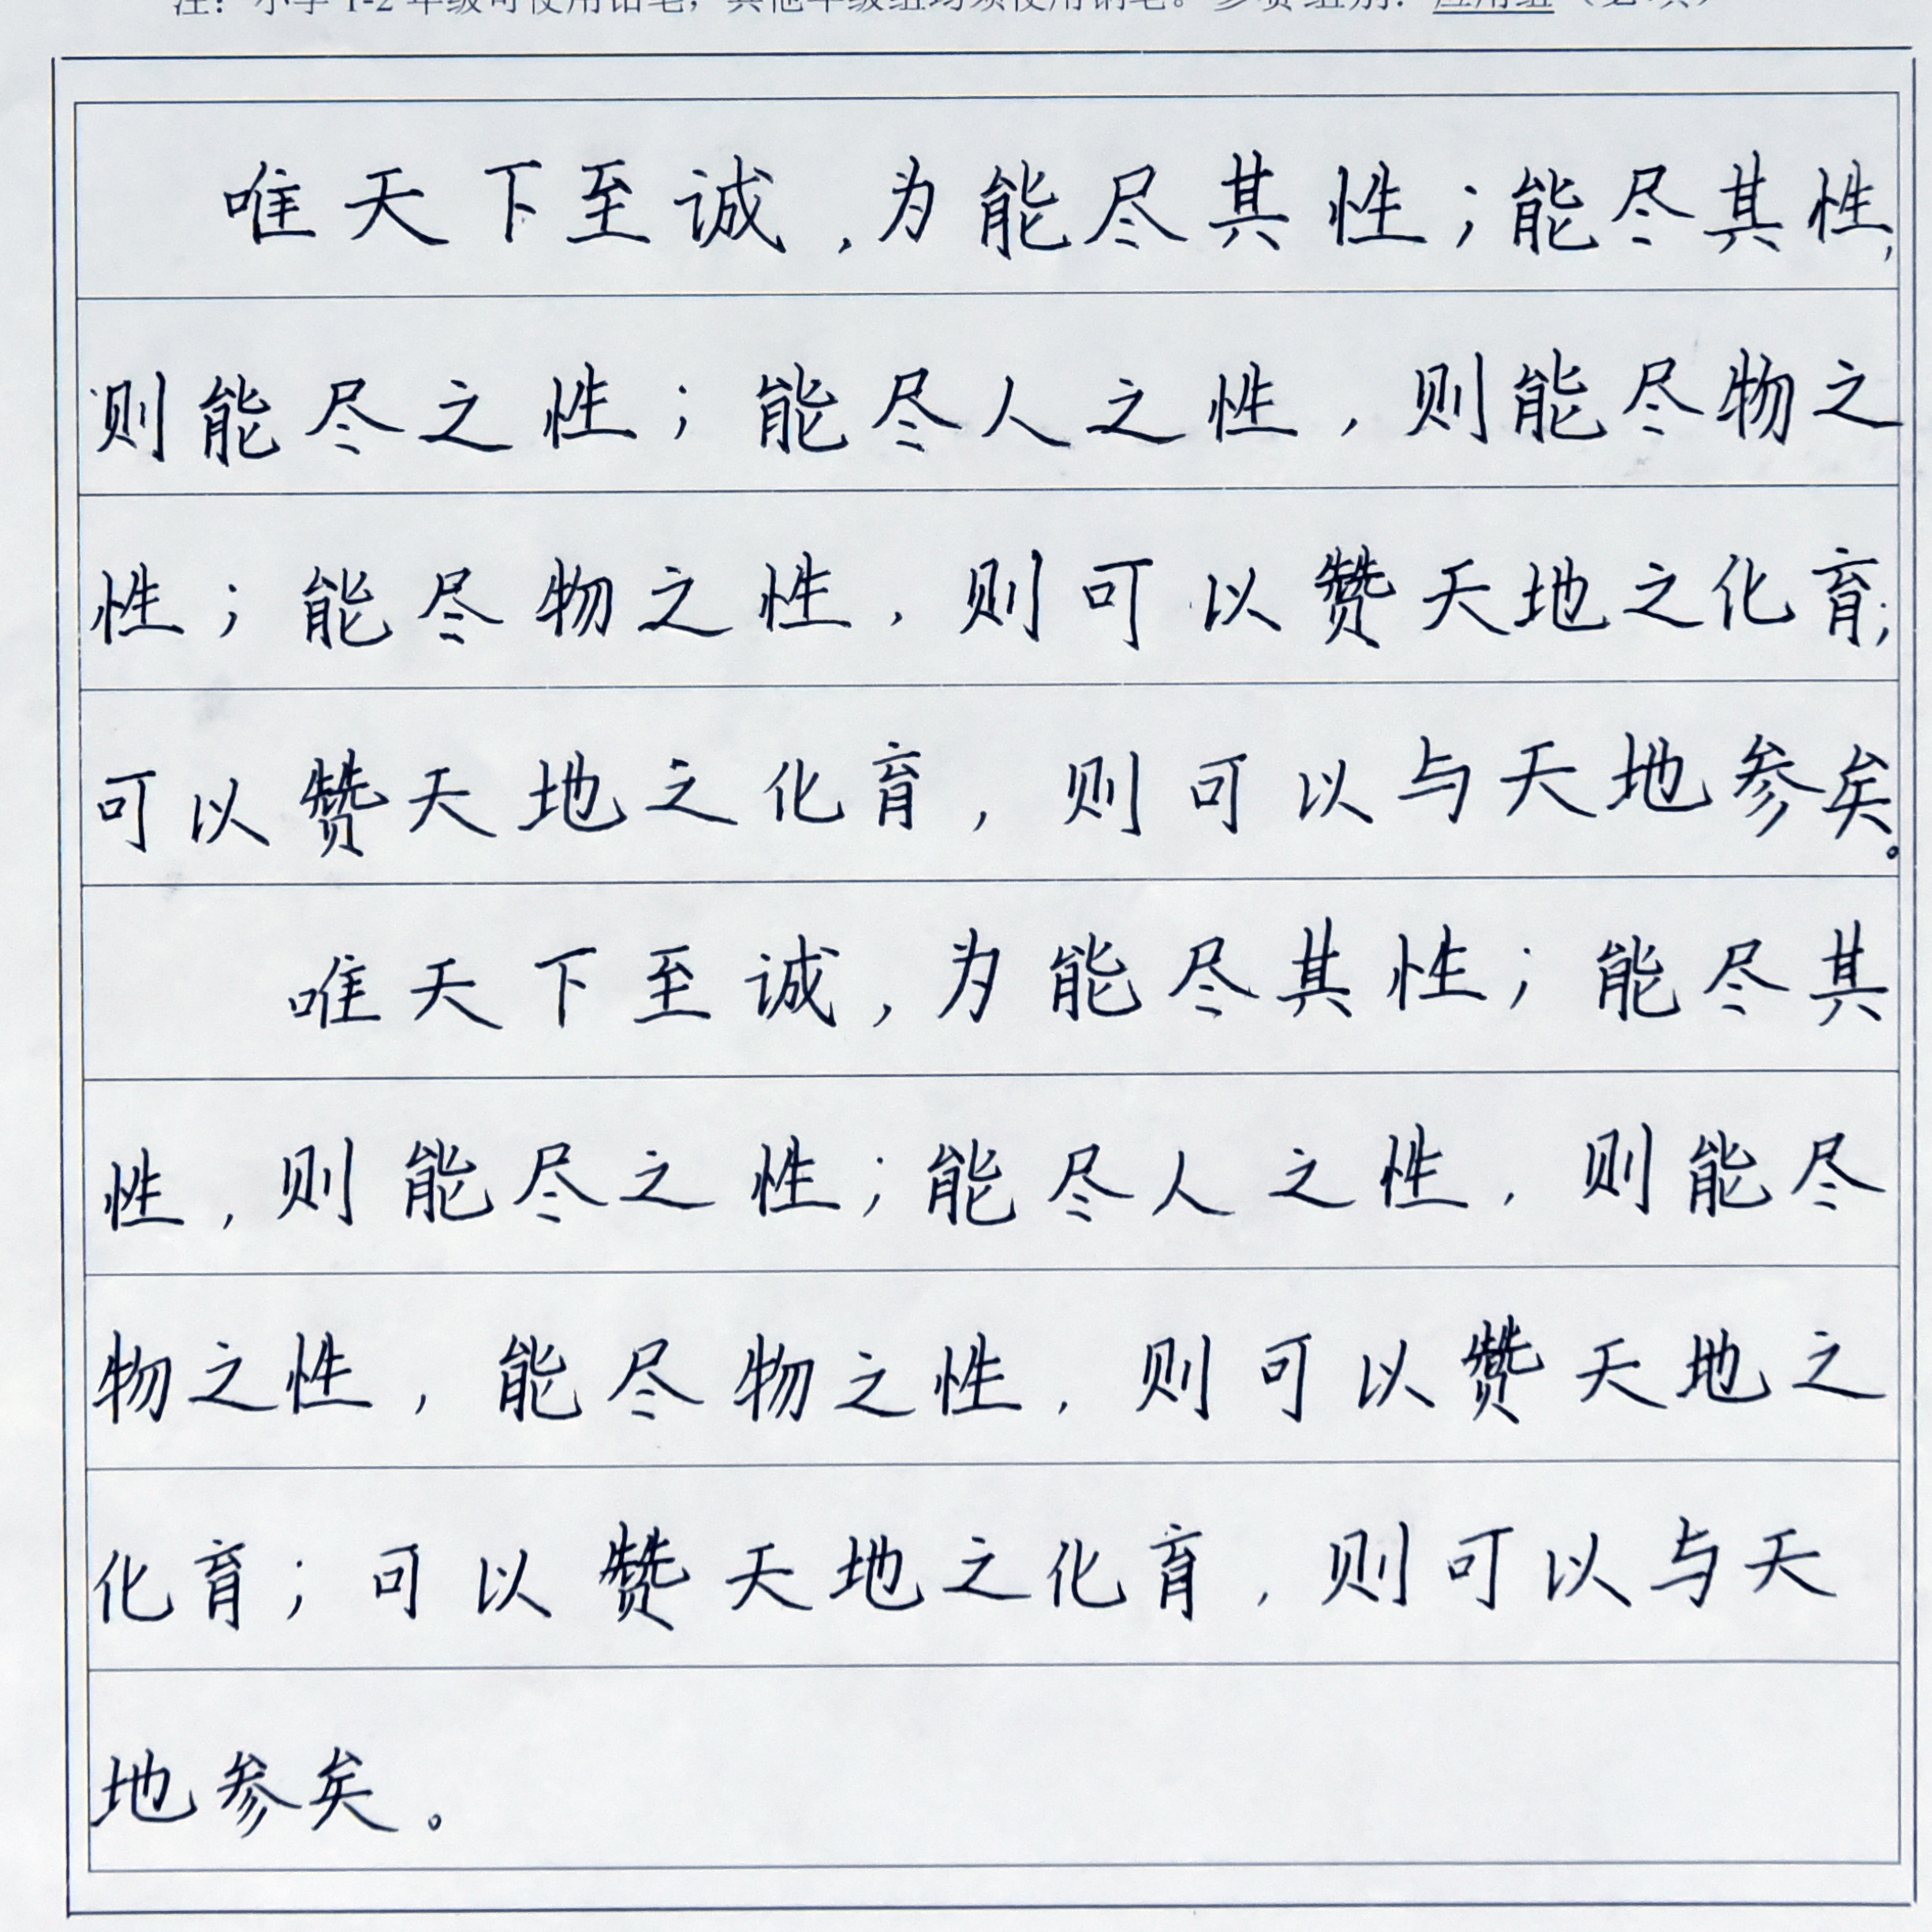 注：小学 1-2 年级可使用铅笔，其他年级组均须使用钢笔。参赛组别：应用组（必填）
唯天下至诚，为能尽其性；能尽其性，
则能尽之性；能尽人之性，则能尽物之
性；能尽物之性，则可以赞天地之化育；
可以赞天地之化育，则可以与天地参矣。
唯天下至诚，为能尽其性；能尽其
性，则能尽之性；能尽人之性，则能尽
物之性，能尽物之性，则可以赞天地之
化育；可以赞天地之化育，则可以与天
地参矣。